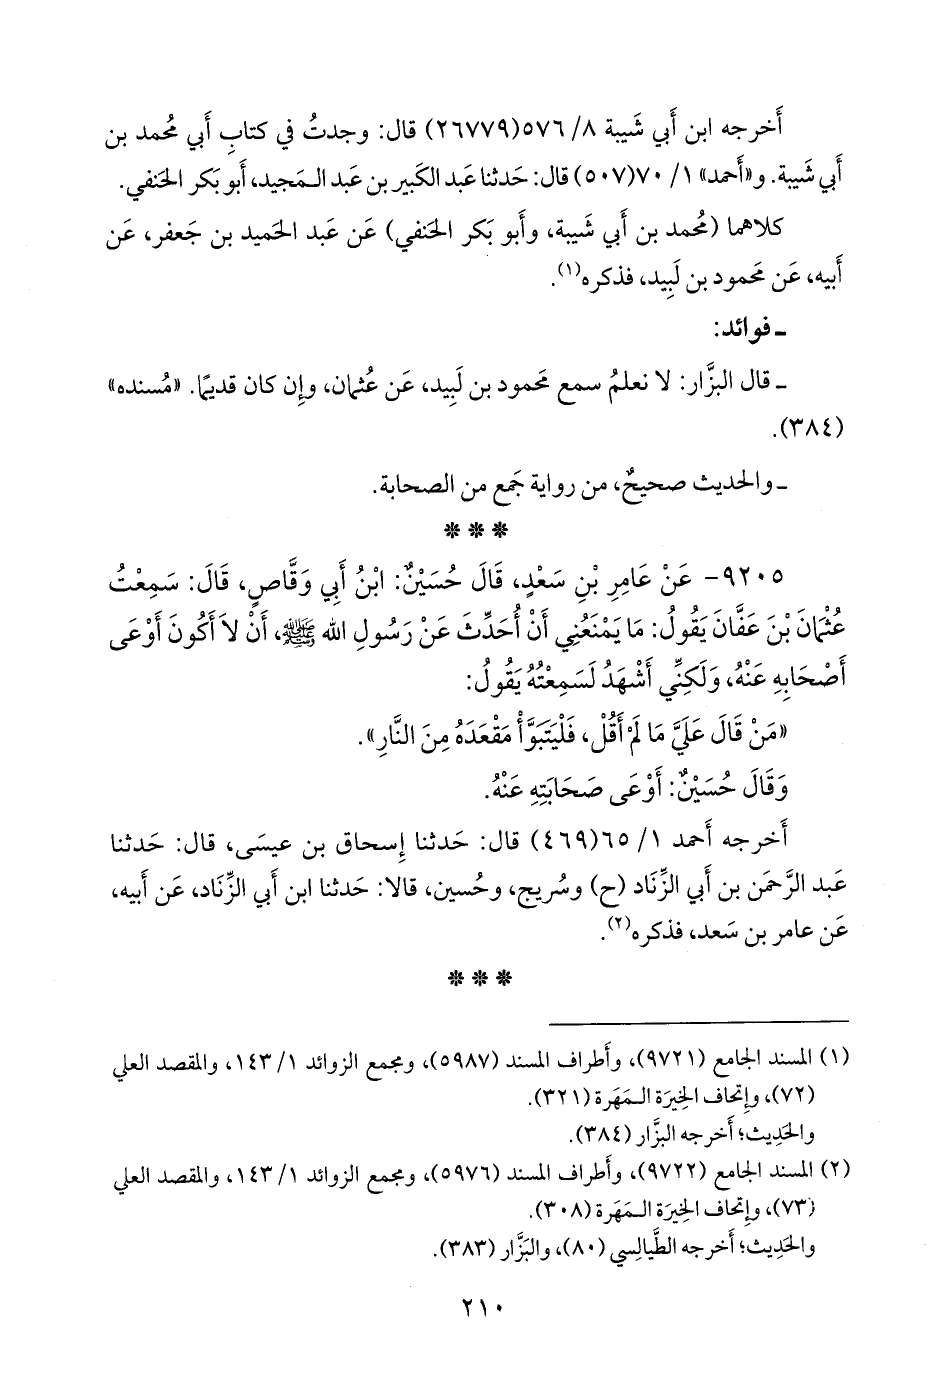 أَخرجه ابن أَبي شَيبة ٨/ ٥٧٦(٢٦٧٧٩) قال: وجدتُ في كتابِ أَبي مُحمد بن
أَبي شَيبة. و«أَحمد» ١/ ٧٠(٥٠٧) قال: حَدثنا عَبد الكَبير بن عَبد المجيد، أَبو بَكر الحَنفي.
كلاهما (مُحمد بن أَبي شَيبة، وأَبو بَكر الحَنفي) عَن عَبد الحَميد بن جَعفر، عَن
أَبيه، عَن مَحمود بن لَبِيد، فذكره(١).
ـ فوائد:
ـ قال البزَّار: لا نعلمُ سمع مَحمود بن لَبِيد، عَن عُثمان، وإِن كان قديمًا. «مُسنده»
(٣٨٤).
ـ والحديث صحيحٌ، من رواية جَمع من الصحابة.
* * *
٩٢٠٥- عَنْ عَامِرِ بْنِ سَعْدٍ، قَالَ حُسَيْنٌ: ابْنُ أَبِي وَقَّاصٍ، قَالَ: سَمِعْتُ
عُثْمَانَ بْنَ عَفَّانَ يَقُولُ: مَا يَمْنَعُنِي أَنْ أُحَدِّثَ عَنْ رَسُولِ الله ﷺ، أَنْ لاَ أَكُونَ أَوْعَى
أَصْحَابِهِ عَنْهُ، وَلَكِنِّي أَشْهَدُ لَسَمِعْتُهُ يَقُولُ:
«مَنْ قَالَ عَلَيَّ مَا لَمْ أَقُلْ، فَلْيَتَبَوَّأْ مَقْعَدَهُ مِنَ النَّارِ».
وَقَالَ حُسَيْنٌ: أَوْعَى صَحَابَتِهِ عَنْهُ.
أَخرجه أَحمد ١/ ٦٥(٤٦٩) قال: حَدثنا إِسحاق بن عيسَى، قال: حَدثنا
عَبد الرَّحمَن بن أَبي الزِّنَاد (ح) وسُريج، وحُسين، قالا: حَدثنا ابن أَبي الزِّنَاد، عَن أَبيه،
عَن عامر بن سَعد، فذكره(٢).
* * *
(١) المسند الجامع (٩٧٢١)، وأَطراف المسند (٥٩٨٧)، ومجمع الزوائد ١/ ١٤٣، والمقصد العلي
(٧٢)، وإِتحاف الخِيرَة الـمَهَرة (٣٢١).
والحَدِيث؛ أَخرجه البزَّار (٣٨٤).
(٢) المسند الجامع (٩٧٢٢)، وأَطراف المسند (٥٩٧٦)، ومجمع الزوائد ١/ ١٤٣، والمقصد العلي
(٧٣)، وإِتحاف الخِيرَة الـمَهَرة (٣٠٨).
والحَدِيث؛ أَخرجه الطَّيالِسي (٨٠)، والبَزَّار (٣٨٣).
٢١٠